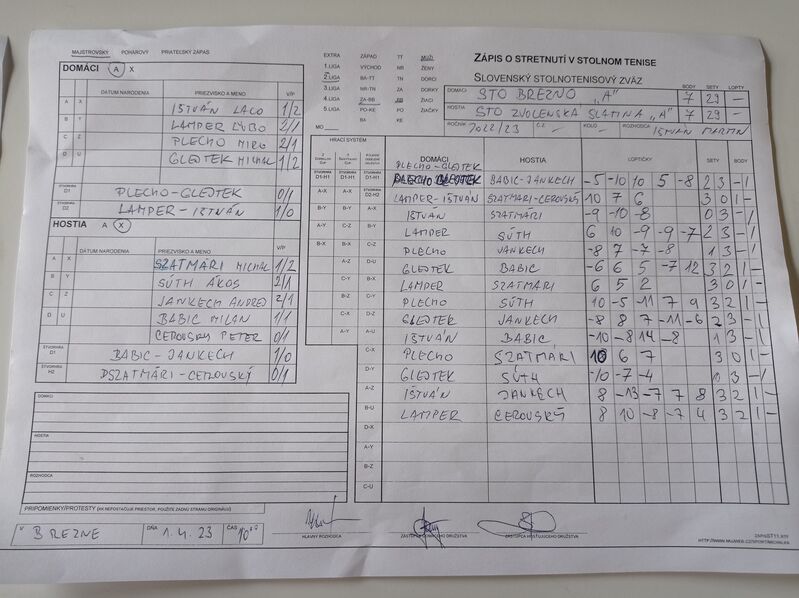 MAJSTROVSKÝ POHÁROVÝ PRIATEĽSKÝ ZÁPAS
DOMÁCI A X
DÁTUM NARODENIA PRIEZVISKO A MENO V/P
A X ISTVÁN LACO 1/2
B Y LAMPER ĽUBO 2/1
C Z PLECHO MIRO 2/1
D U GLEJTEK MICHAL 1/2
ŠTVORHRA D1 PLECHO-GLEJTEK 0/1
ŠTVORHRA D2 LAMPER-IŠTVÁN 1/0
HOSTIA A X
DÁTUM NARODENIA PRIEZVISKO A MENO V/P
A X SZATMÁRI MICHAL 1/2
B Y SÚTH ÁKOS 2/1
C Z JANKECH ANDREJ 2/1
D U BABIC MILAN 1/1
CEROVSKÝ PETER 0/1
BABIC-JANKECH 1/0
SZATMÁRI-CEROVSKÝ 0/1
DOMÁCI
HOSTIA
ROZHODCA
PRIPOMIENKY/PROTESTY (AK NEPOSTAČUJE PRIESTOR, POUŽITE ZADNÚ STRANU ORIGINÁLU)
V BREZNE DŇA 1.4.23 ČAS 10
EXTRA ZÁPAD TT MUŽI
1.LIGA VÝCHOD NR ŽENY
2.LIGA BA-TT TN DORCI
3.LIGA NR-TN ZA DORKY
4.LIGA ZA-BB BB ŽIACI
5.LIGA PO-KE PO ŽIAČKY
BA KE
MO
ZÁPIS O STRETNUTÍ V STOLNOM TENISE
SLOVENSKÝ STOLNOTENISOVÝ ZVÄZ
BODY SETY LOPTY
DOMÁCI STO BREZNO „A" 7 29 –
HOSTIA STO ZVOLENSKÁ SLATINA „A" 7 29 –
ROČNÍK 2022/23 Č.Z. – KOLO – ROZHODCA IŠTVÁN MARTIN
HRACÍ SYSTÉM
DOMÁCI HOSTIA LOPTIČKY SETY BODY
PLECHO-GLEJTEK
D1-H1 D1-H1 BABIC-JANKECH -5 -10 10 5 -8 2 3 - 1
A-X LAMPER-IŠTVÁN SZATMÁRI-CEROVSKÝ 10 7 6 3 0 1 -
B-Y IŠTVÁN SZATMÁRI -9 -10 -8 0 3 - 1
LAMPER SÚTH 6 10 -9 -9 -7 2 3 - 1
PLECHO JANKECH -8 7 -7 -8 1 3 - 1
GLEJTEK BABIC -6 6 5 -7 12 3 2 1 -
LAMPER SZATMÁRI 6 5 2 3 0 1 -
PLECHO SÚTH 10 -5 -11 7 9 3 2 1 -
GLEJTEK JANKECH -8 8 7 -11 -6 2 3 - 1
IŠTVÁN BABIC -10 -8 14 -8 1 3 - 1
C-X PLECHO SZATMÁRI 10 6 7 3 0 1 -
D-Y GLEJTEK SÚTH -10 -7 -4 0 3 - 1
A-Z IŠTVÁN JANKECH 8 -13 -7 7 8 3 2 1 -
B-U LAMPER CEROVSKÝ 8 10 -8 -7 4 3 2 1 -
D-X
A-Y
B-Z
C-U
HLAVNÝ ROZHODCA
ZÁSTUPCA DOMÁCEHO DRUŽSTVA
ZÁSTUPCA HOSŤUJÚCEHO DRUŽSTVA